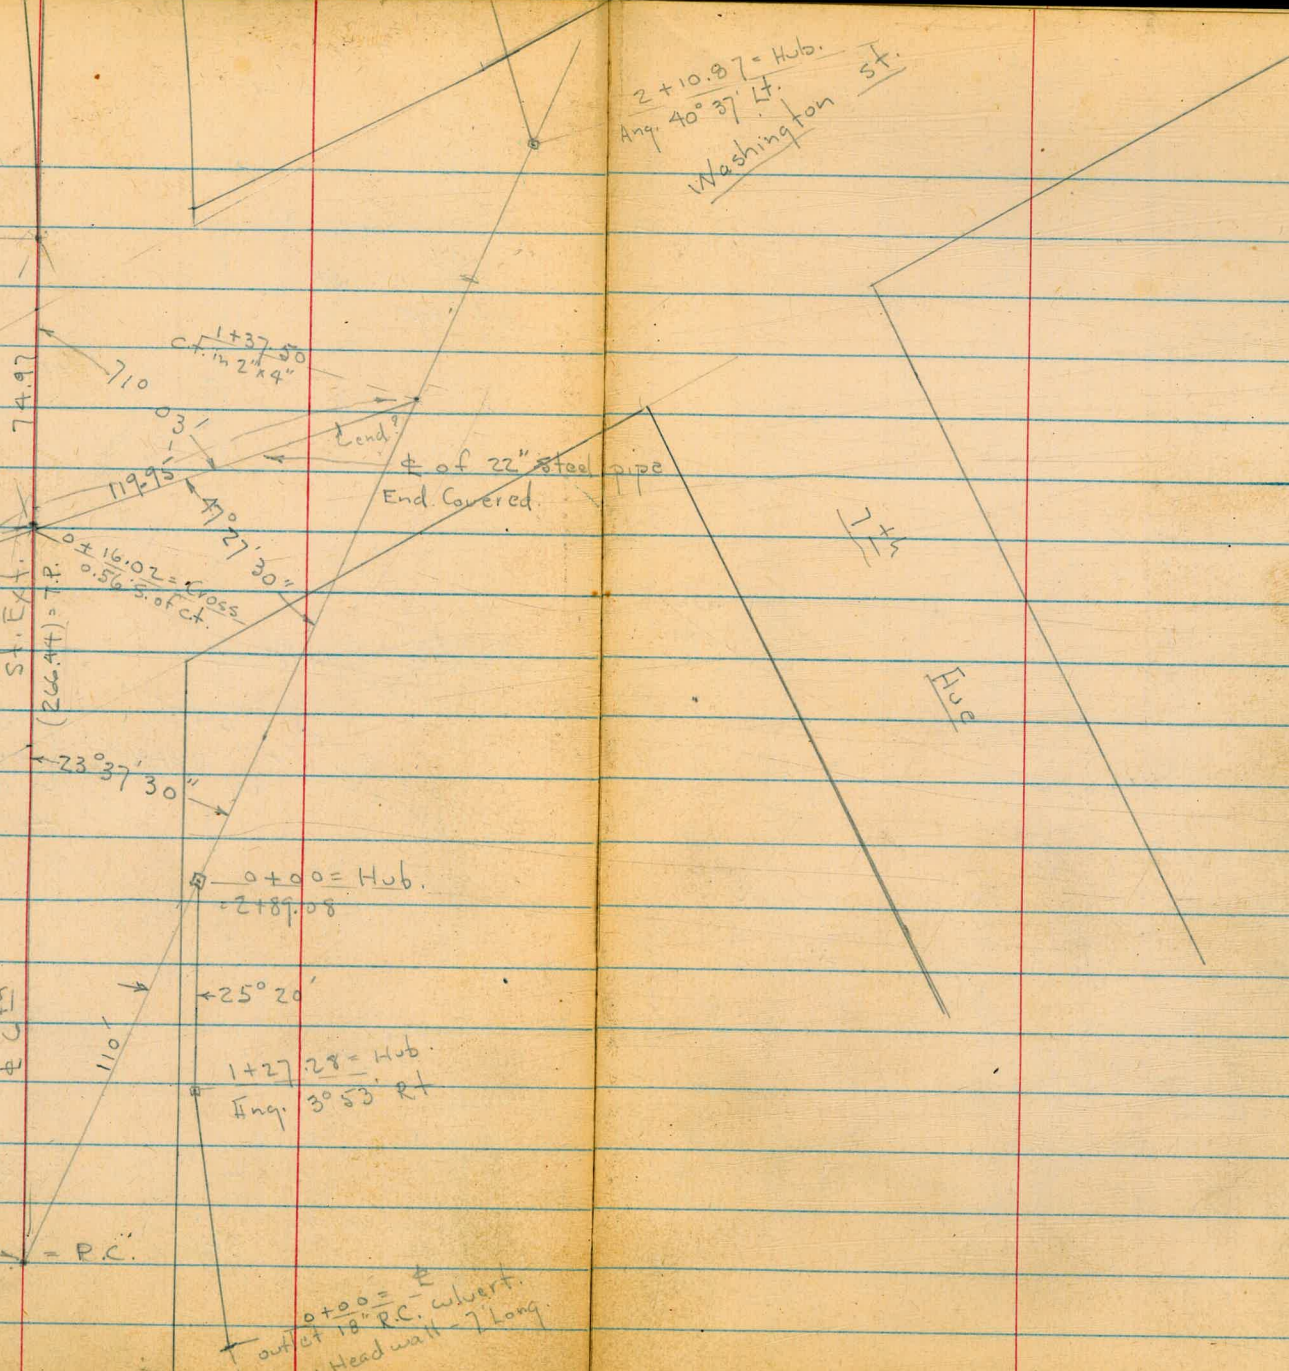 2+10.87= Hub.
Ang. 40° 37' Lt.
Washington St.
1+37.50
C.t. in 2"x4"
74.97
710
03'
End?
119.95'
℄ of 22" Steel pipe
End Covered.
47° 27' 30"
7th
Ave
0+16.02= Cross
0.56' S. of c.t.
St. Ext.
(266.44) = T.P.
23° 37' 30"
0+00= Hub.
=2+89.08
25° 20'
110'
1+27.28= Hub.
Ang. 3° 53' Rt
= P.C.
0+00= ℄
outlet 18" R.C. culvert.
Head wall - 7' Long.